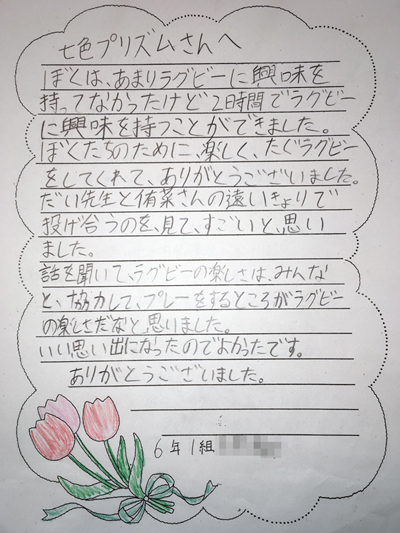 七色プリズムさんへ
ぼくは、あまりラグビーに興味を
持ってなかったけど2時間でラグビー
に興味を持つことができました。
ぼくたちのために、楽しく、たぐラグビー
をしてくれて、ありがとうございました。
だい先生と侑菜さんの遠いきょりで
投げ合うのを、見て、すごいと、思い
ました。
話を聞いて、ラグビーの楽しさは、みんな
と、協力して、プレーをするところがラグビー
の楽しさだなと、思いました。
いい思い出になったのでよかったです。
ありがとうございました。
6年1組